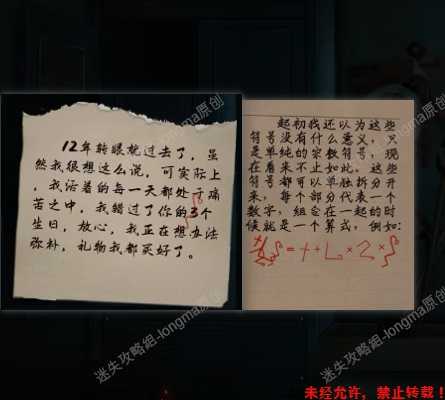 12年转眼就过去了，虽
然我很想这么说，可实际上
，我活着的每一天都处于痛
苦之中，我错过了你的3个
生日，放心，我正在想办法
弥补，礼物我都买好了。
起初我还以为这些
符号没有什么意义，只
是单纯的宗教符号，现
在看来不止如此，这些
符号都可以单独拆分开
来，每个部分代表一个
数字，组合在一起的时
候就是一个算式，例如：
迷失攻略組-longma原创
迷失攻略組-longma原创
迷失攻略組-longma原创
迷失攻略組-longma原创
未经允许，禁止转载！